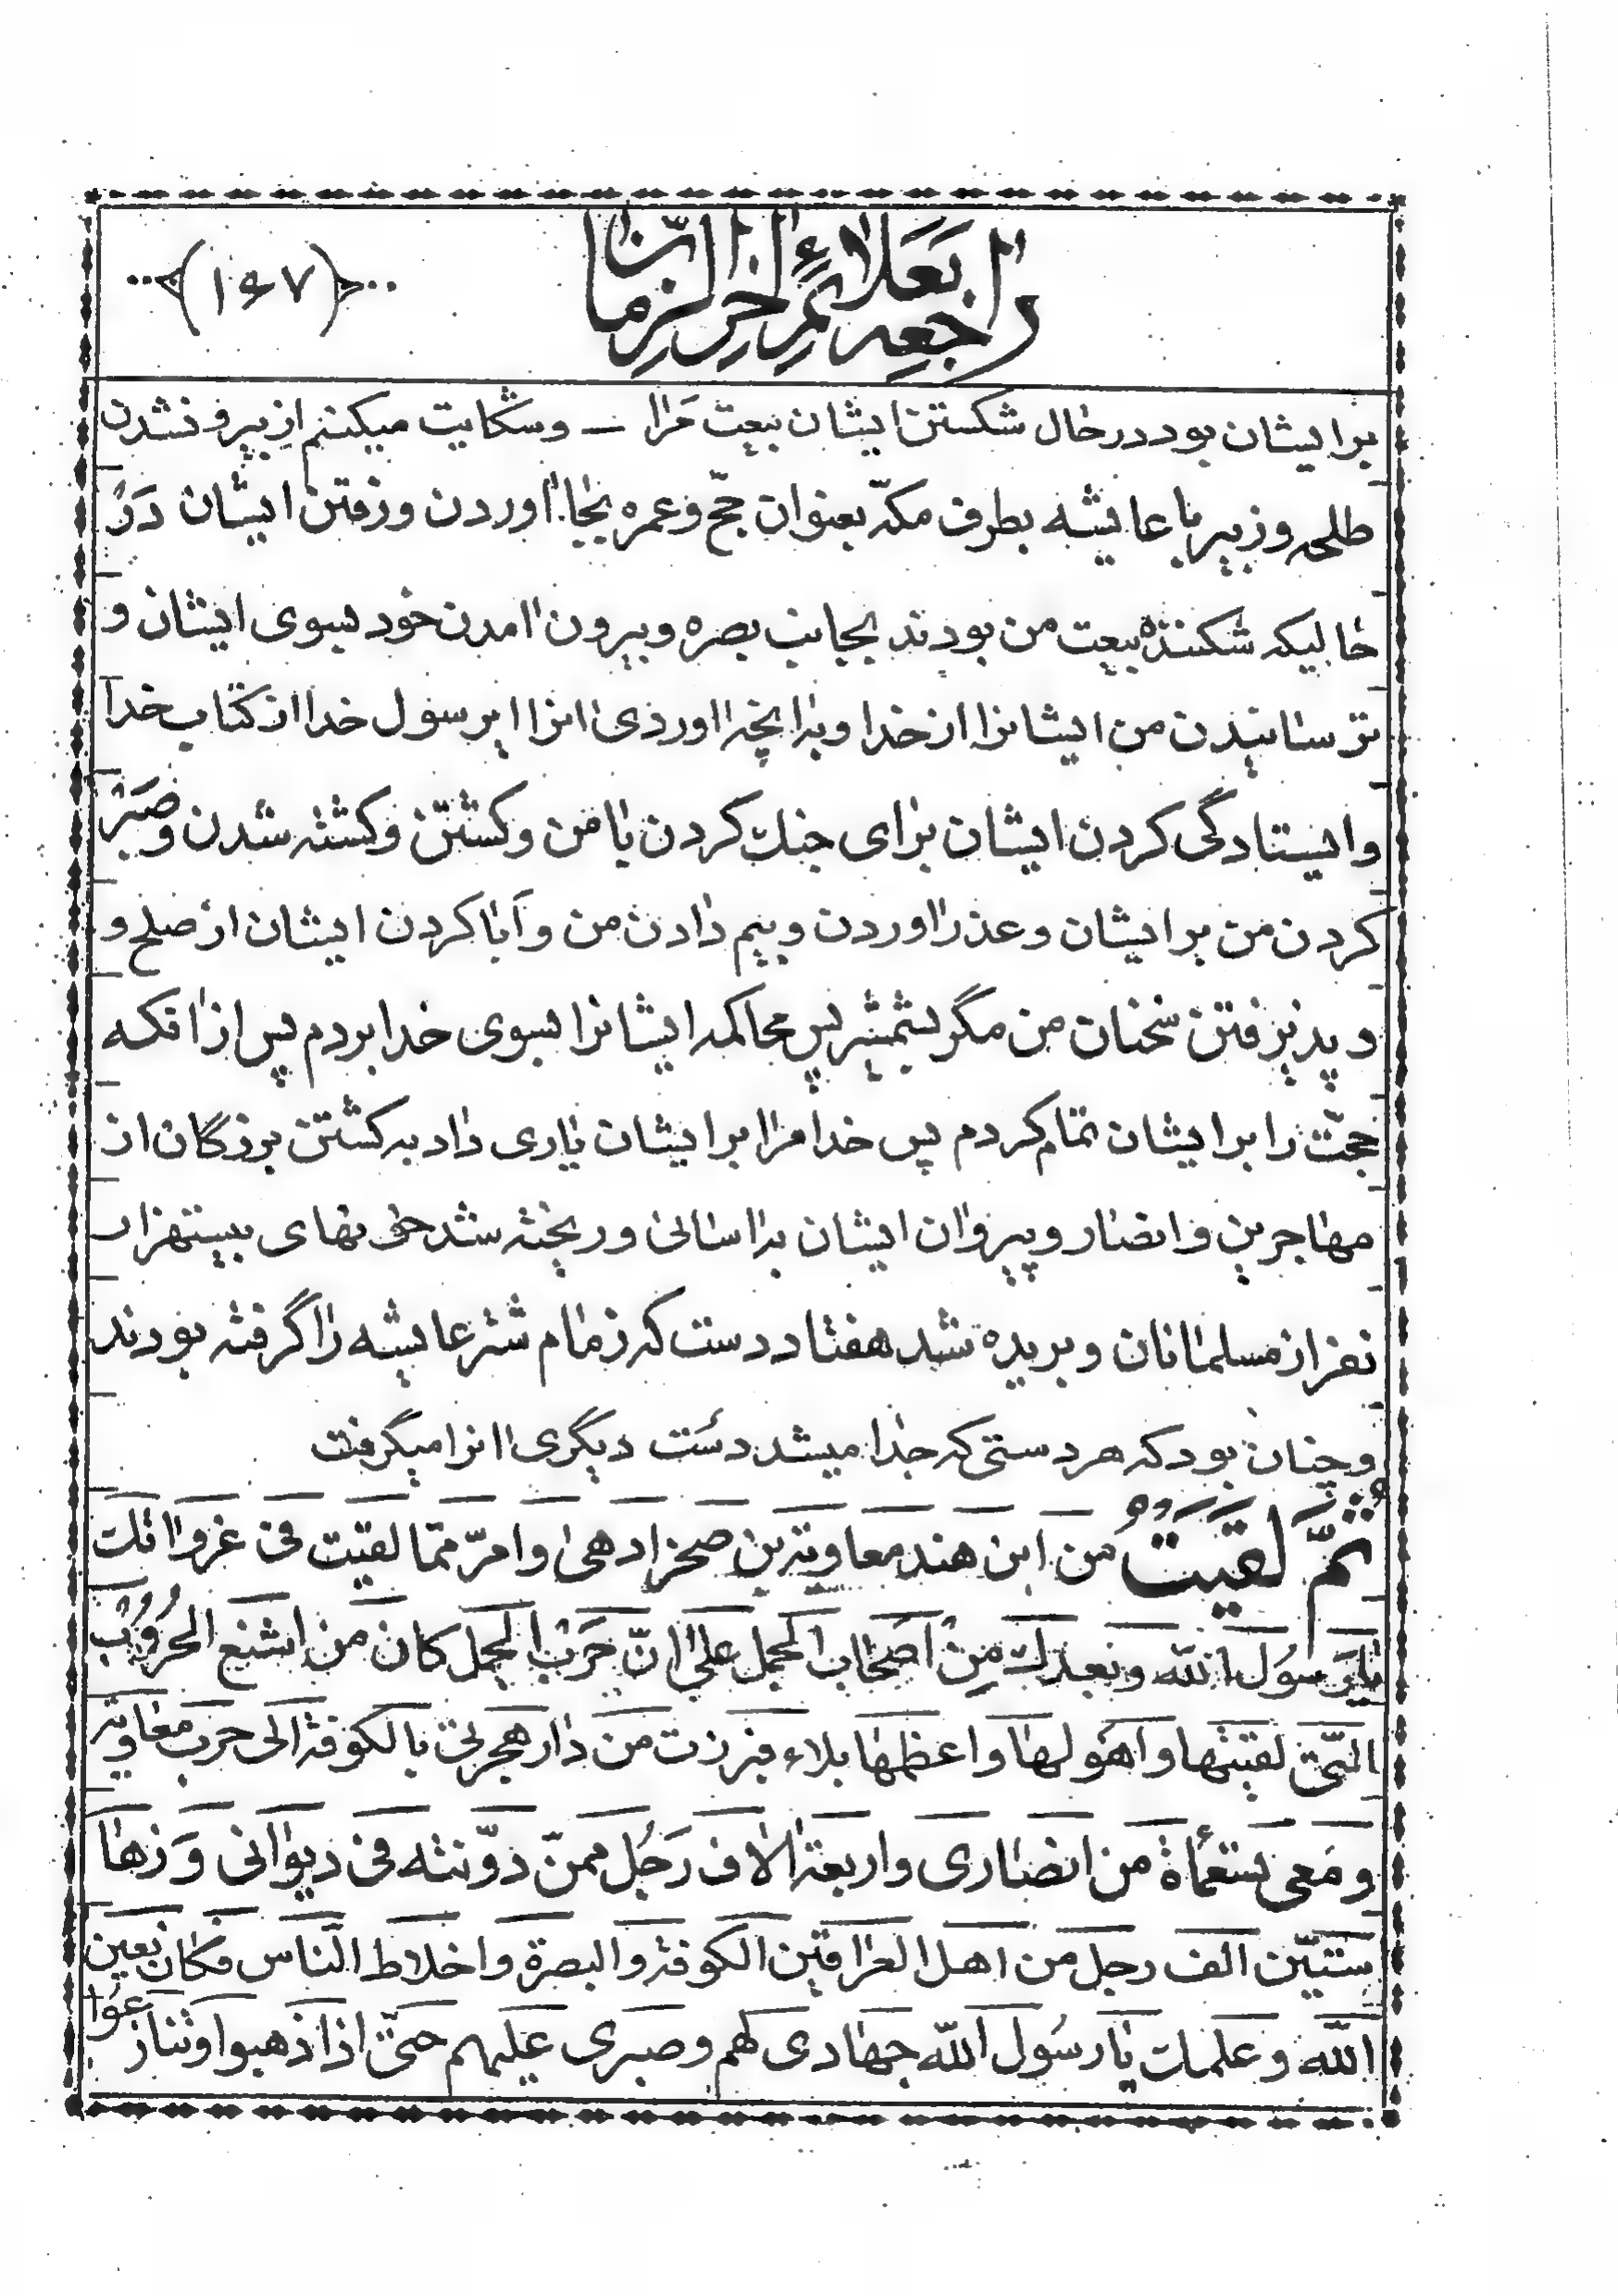 راجعه بعلائم اخر الزمان
(۱۶۷)
برایشان بود در حال شکستن ایشان بیعت مرا ــ و شکایت میکنم از بیرون شدن
طلحه و زبیر با عایشه بطرف مکّه بعنوان حجّ و عمره بجا اوردن و رفتن ایشان در
حالیکه شکنندۀ بیعت من بودند بجانب بصره و بیرون امدن خود بسوی ایشان و
ترسانیدن من ایشانرا از خدا و بدانچه اوردی انرا ای رسول خدا از کتاب خدا
و ایستادگی کردن ایشان برای جنك کردن با من و کشتن و کشته شدن و صبر
کردن من بر ایشان و عذر اوردن و بیم دادن من و آبا کردن ایشان از صلح و
د پذیرفتن سخنان من مگر بشمشیر پس محاکمه ایشانرا بسوی خدا بردم پس از انکه
حجّت را بر ایشان تمام کردم پس خدا مرا بر ایشان یاری داد به کشتن بزرگان از
مهاجرین و انصار و پیروان ایشان بداسالی و ریخته شد خونهای بیستهزار
نفر از مسلمانان و بریده شد هفتاد دست که زمام شتر عایشه را گرفته بودند
و چنان بود که هر دستی که جدا میشد دست دیگری انرا میگرفت
ثُمَّ لَقیتُ من ابن هند معاویة بن صخر ادهی و امرّ ممّا لقیت فی غزواتك
یا رَسُول الله و بعدك مِنْ اَصحاب الجمل علی انّ حَرْب الجمل کان من اشنع الحُرُوب
الّتی لقیتها و اهولها و اعظمها بلاء فبرزت من دار هجرتی بالکوفة الی حرب معاویة
و مَعی تسعمأة من انصاری و اربعة الاف رَجُل ممّن دوّنته فی دیوانی وَ زها
ستّین الف رجل من اهل العراقین الکوفة و البصرة و اخلاط النّاس فکان بعین
الله و علمك یا رسُول الله جهادی لهم و صبری علیهم حتّی اذا ذهبوا و تنازعُوا